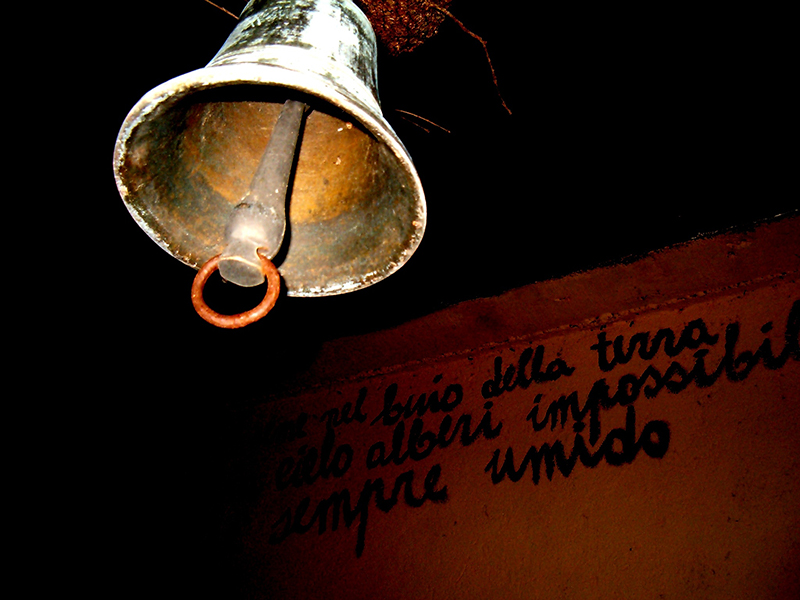 nel buio della terra
cielo alberi impossibil
sempre umido